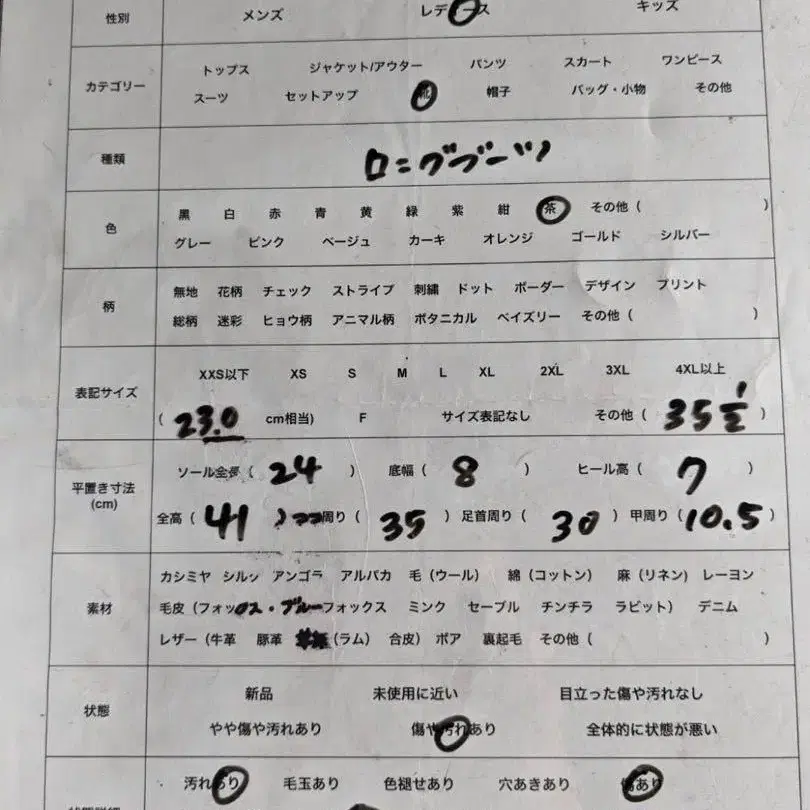 性別 メンズ レディース キッズ
カテゴリー トップス ジャケット/アウター パンツ スカート ワンピース
スーツ セットアップ 靴 帽子 バッグ・小物 その他
種類 ロングブーツ
色 黒 白 赤 青 黄 緑 紫 紺 茶 その他 ( )
グレー ピンク ベージュ カーキ オレンジ ゴールド シルバー
柄 無地 花柄 チェック ストライプ 刺繍 ドット ボーダー デザイン プリント
総柄 迷彩 ヒョウ柄 アニマル柄 ボタニカル ペイズリー その他 ( )
表記サイズ XXS以下 XS S M L XL 2XL 3XL 4XL以上
( 23.0 cm相当) F サイズ表記なし その他 ( 35 1/2 )
平置き寸法 (cm) ソール全長 ( 24 ) 底幅 ( 8 ) ヒール高 ( 7 )
全高 ( 41 ) 周り ( 35 ) 足首周り ( 30 ) 甲周り ( 10.5 )
素材 カシミヤ シルク アンゴラ アルパカ 毛（ウール） 綿（コットン） 麻（リネン) レーヨン
毛皮（フォックス・ブルーフォックス ミンク セーブル チンチラ ラビット） デニム
レザー（牛革 豚革 （ラム） 合皮） ボア 裏起毛 その他 ( )
状態 新品 未使用に近い 目立った傷や汚れなし
やや傷や汚れあり 傷や汚れあり 全体的に状態が悪い
汚れあり 毛玉あり 色褪せあり 穴あきあり 傷あり